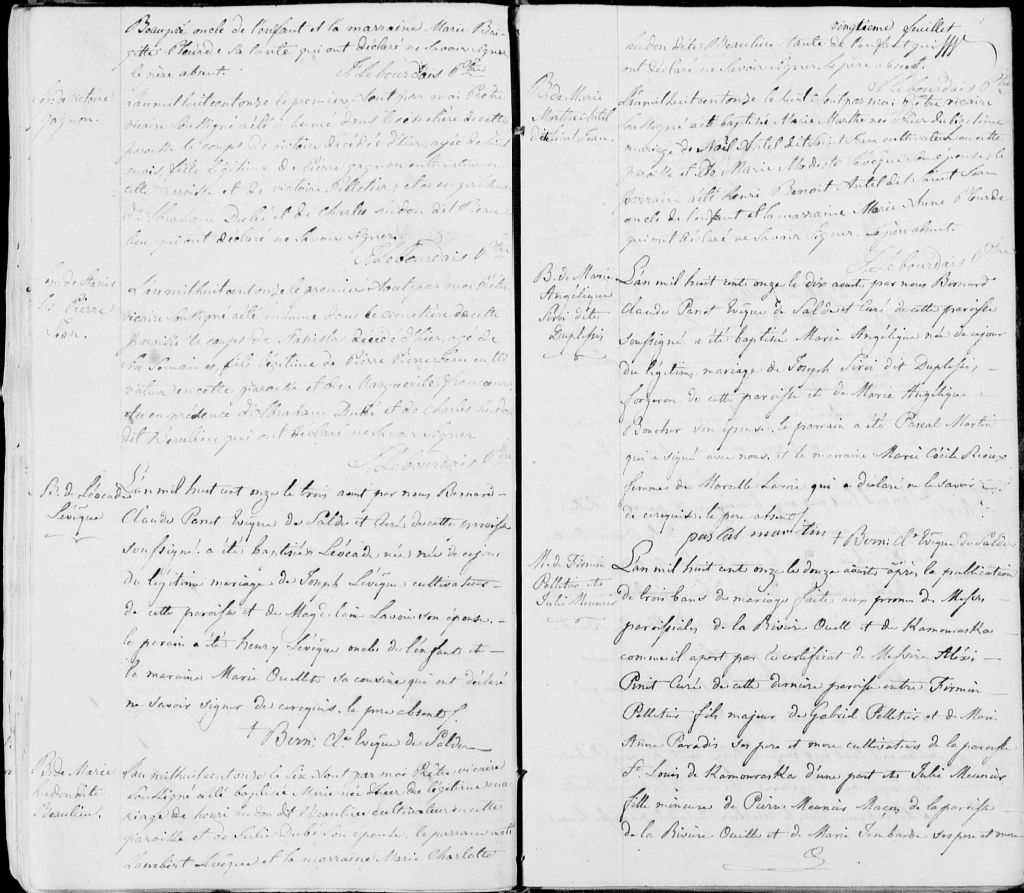 Beaupré oncle de l'enfant et la marraine Marie Bri
gette Plourde sa tante qui ont déclaré ne savoir signer
le père absent. J. Lebourdais Ptre
victoire
Gagnon.
L'an mil huit cent onze le premier Aout par moi Prêtre
vicaire soussigné a été inhumé dans le cimetière de cette
paroisse le corps de victoire décédée d'hier, agée de huit
mois, fille légitime de Pierre gagnon cultivateur en
cette paroisse et de victoire Pelletier, en présence
d'Abraham Dubé et de Charles hudon dit Beau
lieu qui ont déclaré ne savoir signer
J. Lebourdais Ptre
Stanis
las Pierre
Jean.
L'an mil huit cent onze le premier Aout par moi Prêtre
vicaire soussigné a été inhumé dans le cimetière de cette
paroisse le corps de Stanislas décédé d'hier, agé de
six semaines, fils légitime de Pierre Pierre Jean culti
vateur en cette paroisse et de Marguerite francoeur
en présence d'Abraham Dubé et de Charles hudon
dit Beaulieu qui ont déclaré ne savoir signer
J. Lebourdais Ptre
B. d. Léocade
Lévêque
L'an mil huit cent onze le trois aout par nous Bernard
Claude Panet Evêque de Saldes et Curé de cette paroisse
soussigné a été baptisée Léocade née née de ce jour
du légitime mariage de Joseph Lévêque cultivateur
de cette paroisse et de Magdelaine Lavoie son épouse.
le parain a été henry Lévêque oncle de l'enfant et
la maraine Marie Ouellet sa cousine qui ont déclaré
ne savoir signer de ce requis. le pere absent.
† Bern: Cl. Evêque de Saldes
B. de Marie
hudon dite
Beaulieu.
L'an mil huit cent onze le six Aout par moi Prêtre vicaire
soussigné a été baptisée Marie née d'hier du légitime ma
riage de henri hudon dit Beaulieu cultivateur en cette
paroisse et de Julie Dubé son épouse, le parrain a été
Lambert Lévêque et la marraine Marie Charlotte
vingtieme feuillet
hudon dite Beaulieu tante de l'enfant qui
ont déclaré ne savoir signer le père absent.
J. Lebourdais Ptre
B. de Marie
Marthe Antel
dit Saint Jean.
L'an mil huit cent onze le huit Aout par moi Prêtre vicaire
soussigné a été baptisée Marie Marthe née d'hier du légitime
mariage de Noël Antel dit Saint Jean cultivateur en cette
paroisse et de Marie Modeste Levêque son épouse, le
parrain a été henri Benoit Antel dit Saint Jean
oncle de l'enfant et la marraine Marie Anne Plourde
qui ont déclaré ne savoir signer. le père absent.
J. Lebourdais Ptre
B. de Marie
Angélique
Sirois dite
Duplessis
L'an mil huit cent onze le dix aout par nous Bernard
Claude Panet Evêque de Saldes et Curé de cette paroisse
soussigné a été baptisée Marie Angélique née de ce jour
du légitime mariage de Joseph Siroi dit Duplessis,
forgeron de cette paroisse et de Marie Angélique
Boucher son épouse. le parrain a été Pascal Martin
qui a signé avec nous, et la maraine Marie Cécile Rioux
femme de Marcelle Lavoie qui a déclaré ne le savoir
de ce requis. le pere absent
pascal martin † Bern: Cl. Evêque de Saldes
M. de Firmin
Pelletier et
Julie Meunier
L'an mil huit cent onze le douze aout après la publication
de trois bans de mariage faite aux prones des Messes
paroissiales de la Rivière Ouelle et de Kamouraska
comme il apert par le certificat de Messire Alexis
Pinet Curé de cette derniere paroisse entre Firmin
Pelletier fils majeur de Gabriel Pelletier et de Marie
Anne Paradis ses pere et mere cultivateurs de la paroisse
St. Louis de Kamouraska d'une part et Julie Meunier
fille mineure de Pierre Meunier Maçon de la paroisse
de la Rivière Ouelle et de Marie ses pere et mere